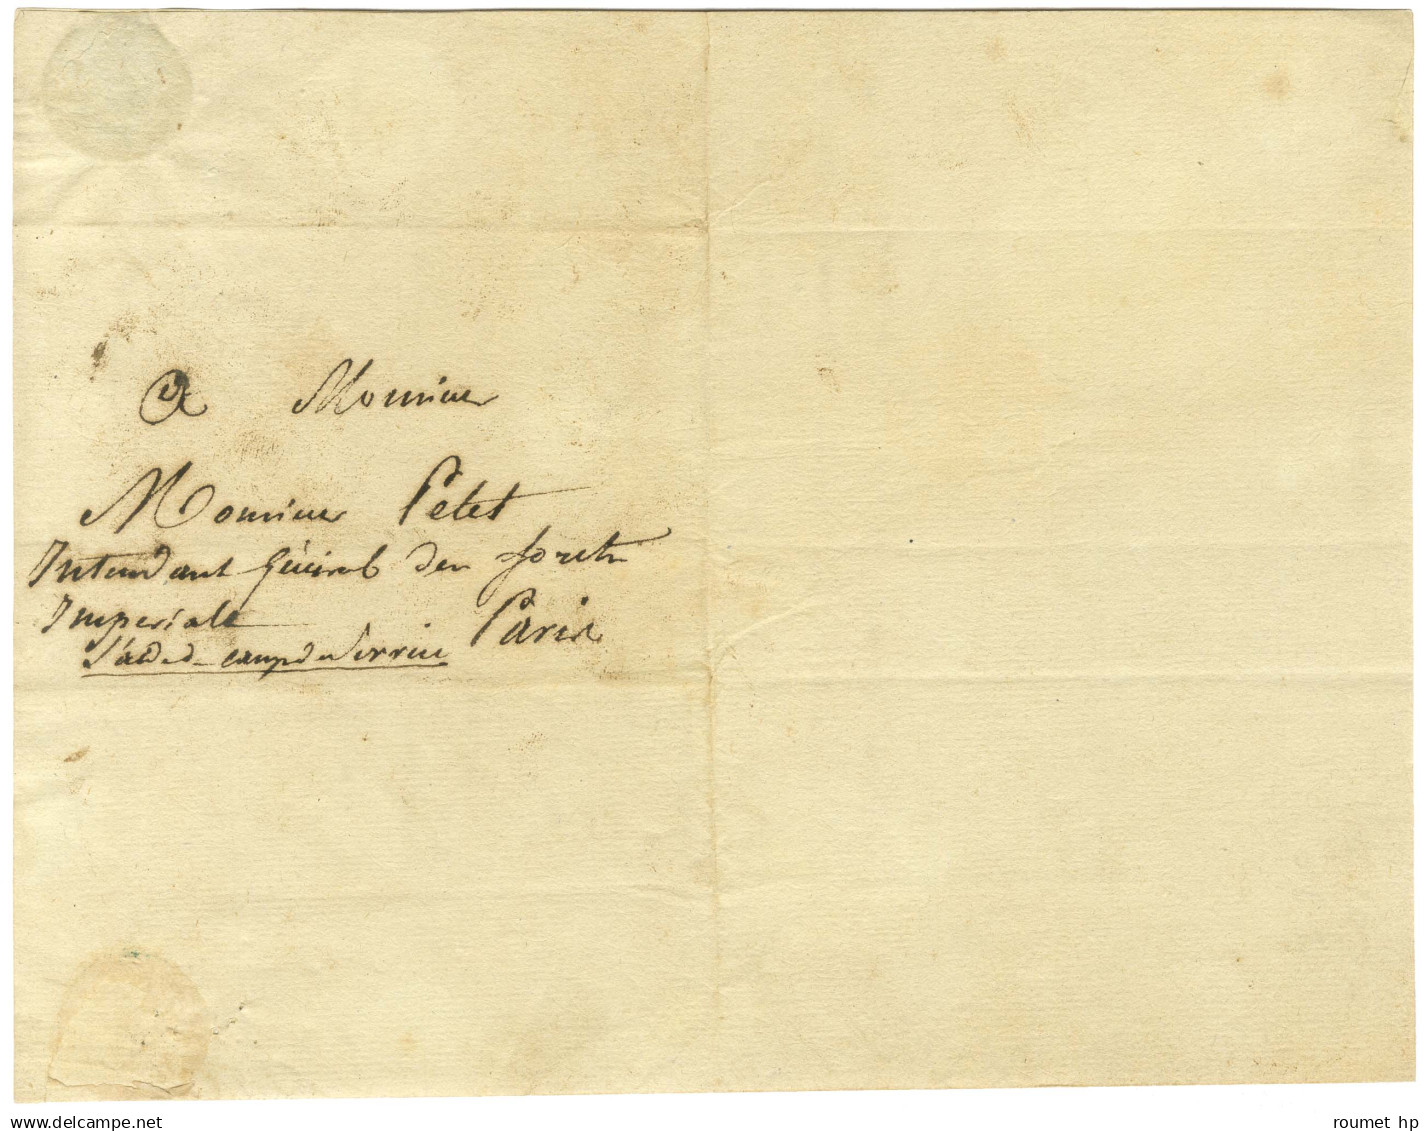 A Monsieur
Monsieur Petet
Intendant général des forets
Imperiale Paris
L'aide-de-camp de Service
delcampe.net
roumet hp